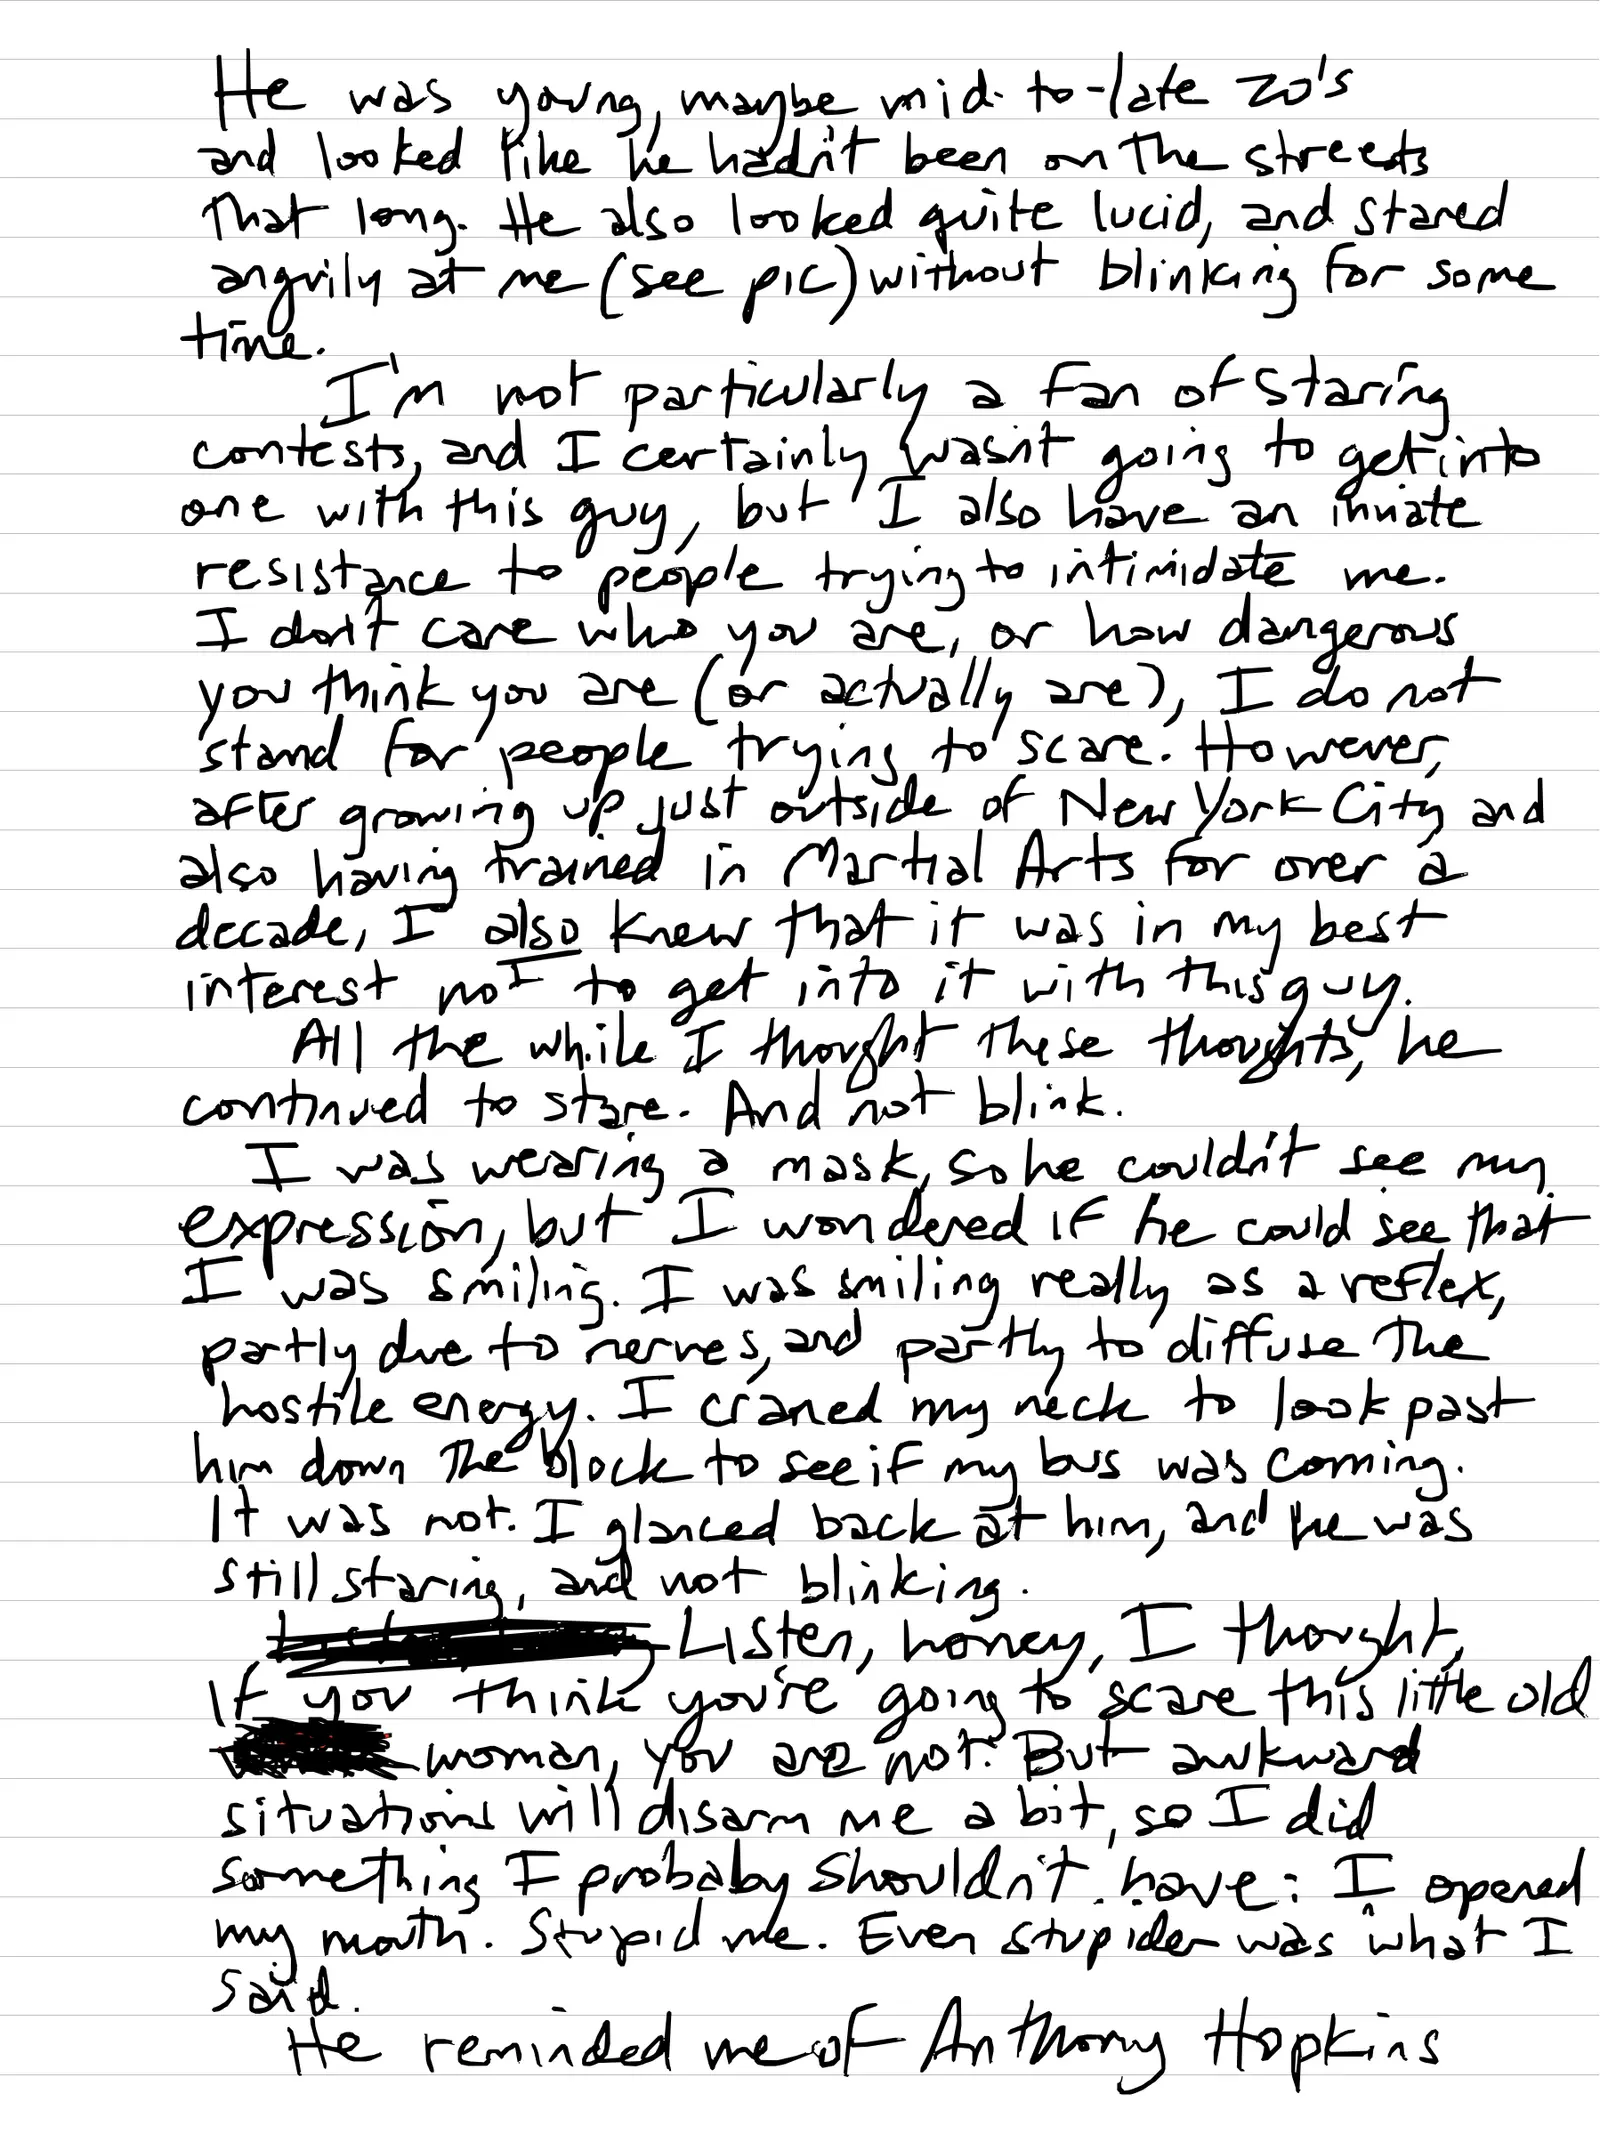 He was young, maybe mid-to-late 20's
and looked like he hadn't been on the streets
that long. He also looked quite lucid, and stared
angrily at me (see pic) without blinking for some
time.
I'm not particularly a fan of staring
contests, and I certainly wasn't going to get into
one with this guy, but I also have an innate
resistance to people trying to intimidate me.
I don't care who you are, or how dangerous
you think you are (or actually are), I do not
stand for people trying to scare. However,
after growing up just outside of New York City and
also having trained in Martial Arts for over a
decade, I also knew that it was in my best
interest not to get into it with this guy.
All the while I thought these thoughts, he
continued to stare. And not blink.
I was wearing a mask, so he couldn't see my
expression, but I wondered if he could see that
I was smiling. I was smiling really as a reflex,
partly due to nerves, and partly to diffuse the
hostile energy. I craned my neck to look past
him down the block to see if my bus was coming.
It was not. I glanced back at him, and he was
still staring, and not blinking.
Listen, honey, I thought,
If you think you're going to scare this little old
woman, you are not. But awkward
situations will disarm me a bit, so I did
something I probaby shouldn't have: I opened
my mouth. Stupid me. Even stupider was what I
said.
He reminded me of Anthony Hopkins